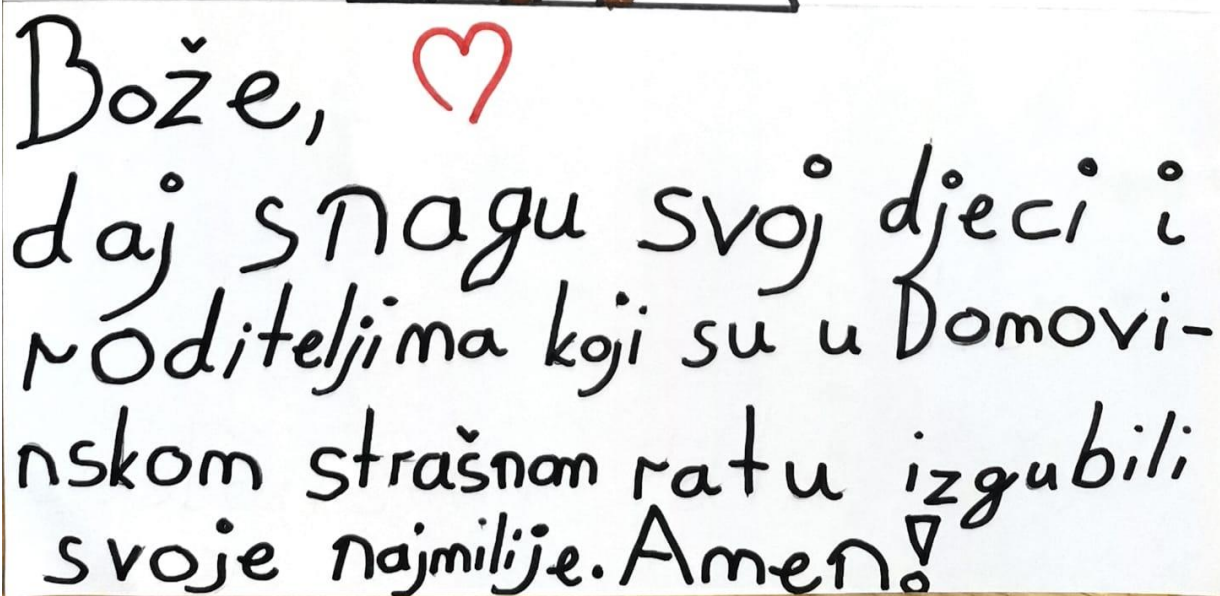 Bože,
daj snagu svoj djeci i
roditeljima koji su u Domovi-
nskom strašnom ratu izgubili
svoje najmilije. Amen!